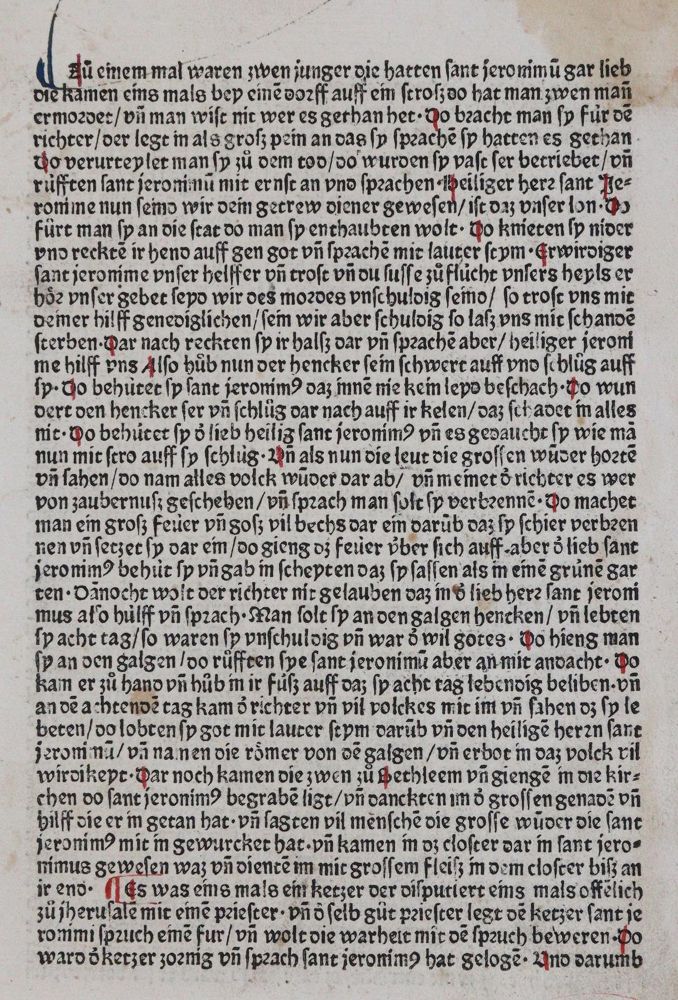 Zů einem mal waren zwen junger die hatten sant jeronimū gar lieb
die kamen eins mals bey einē dorff auff ein strosz do hat man zwen mañ
ermordet/vñ man wist nit wer es gethan het· Do bracht man sy für dē
richter/der legt in als grosz pein an das sy sprachē sy hatten es gethan
Do verurteylet man sy zů dem tod/do wurden sy vast ser betriebet/vñ
růfften sant jeronimū mit ernst an vnd sprachen· Heiliger herr sant Je⸗
ronime nun seind wir dein getrew diener gewesen/ist daz vnser lon· Do
fürt man sy an die stat do man sy enthaubten wolt· Do knieten sy nider
vnd recktē ir hend auff gen got vñ sprachē mit lauter stym· Erwirdiger
sant jeronime vnser helffer vñ trost vñ du susse zůflucht vnsers heyls er
hör vnser gebet seyd wir des mordes vnschuldig seind/ so trost vns mit
deiner hilff genediglichen/sein wir aber schuldig so lasz vns mit schandē
sterben· Dar nach reckten sy ir halsz dar vñ sprachē aber/heiliger jeroni
me hilff vns Also hůb nun der hencker sein schwert auff vnd schlůg auff
sy· Do behütet sy sant jeronimꝰ daz innē nie kein leyd beschach· Do wun
dert den hencker ser vñ schlůg dar nach auff ir kelen/daz schadet in alles
nit· Do behütet sy d̓ lieb heilig sant jeronimꝰ vñ es gedaucht sy wie mā
nun mit stro auff sy schlůg· Vñ als nun die leut die grossen wūder hortē
vñ sahen/do nam alles volck wūder dar ab/ vñ meinet d̓ richter es wer
von zaubernusz geschehen/vñ sprach man solt sy verbrennē· Do machet
man ein grosz feüer vñ gosz vil bechs dar ein darūb daz sy schier verbren
nen vñ setzet sy dar ein/do gieng dz feüer über sich auff·aber d̓ lieb sant
jeronimꝰ behüt sy vñ gab in scheyten daz sy sassen als in einē grünē gar
ten· Dānocht wolt der richter nit gelauben daz in d̓ lieb herr sant jeroni
mus also hülff vñ sprach· Man solt sy an den galgen hencken/ vñ lebten
sy acht tag/so waren sy vnschuldig vñ war d̓ wil gotes· Do hieng man
sy an den galgen/do růfften sye sant jeronimū aber an mit andacht· Do
kam er zů hand vñ hůb in ir füsz auff daz sy acht tag lebendig beliben·vñ
an dē achtendē tag kam d̓ richter vñ vil volckes mit im vñ sahen dz sy le
beten/do lobten sy got mit lauter stym darūb vñ den heiligē herrn sant
jeronimū/vñ namen die römer von dē galgen/vñ erbot in daz volck vil
wirdikeyt· Dar noch kamen die zwen zů Bethleem vñ giengē in die kir⸗
chen do sant jeronimꝰ begrabē ligt/vñ danckten im d̓ grossen genadē vñ
hilff die er in getan hat·vñ sagten vil menschē die grosse wūder die sant
jeronimꝰ mit in gewurcket hat·vñ kamen in dz closter dar in sant jero⸗
nimus gewesen waz vñ dientē im mit grossem fleisz in dem closter bisz an
ir end· ¶ Es was eins mals ein ketzer der disputiert eins mals offēlich
zů jherusalē mit einē priester· vñ d̓ selb gůt priester legt dē ketzer sant je
ronimi spruch einē fur/ vñ wolt die warheit mit dē spruch beweren· Do
ward d̓ ketzer zornig vñ sprach sant jeronimꝰ hat gelogē· Vnd darumb